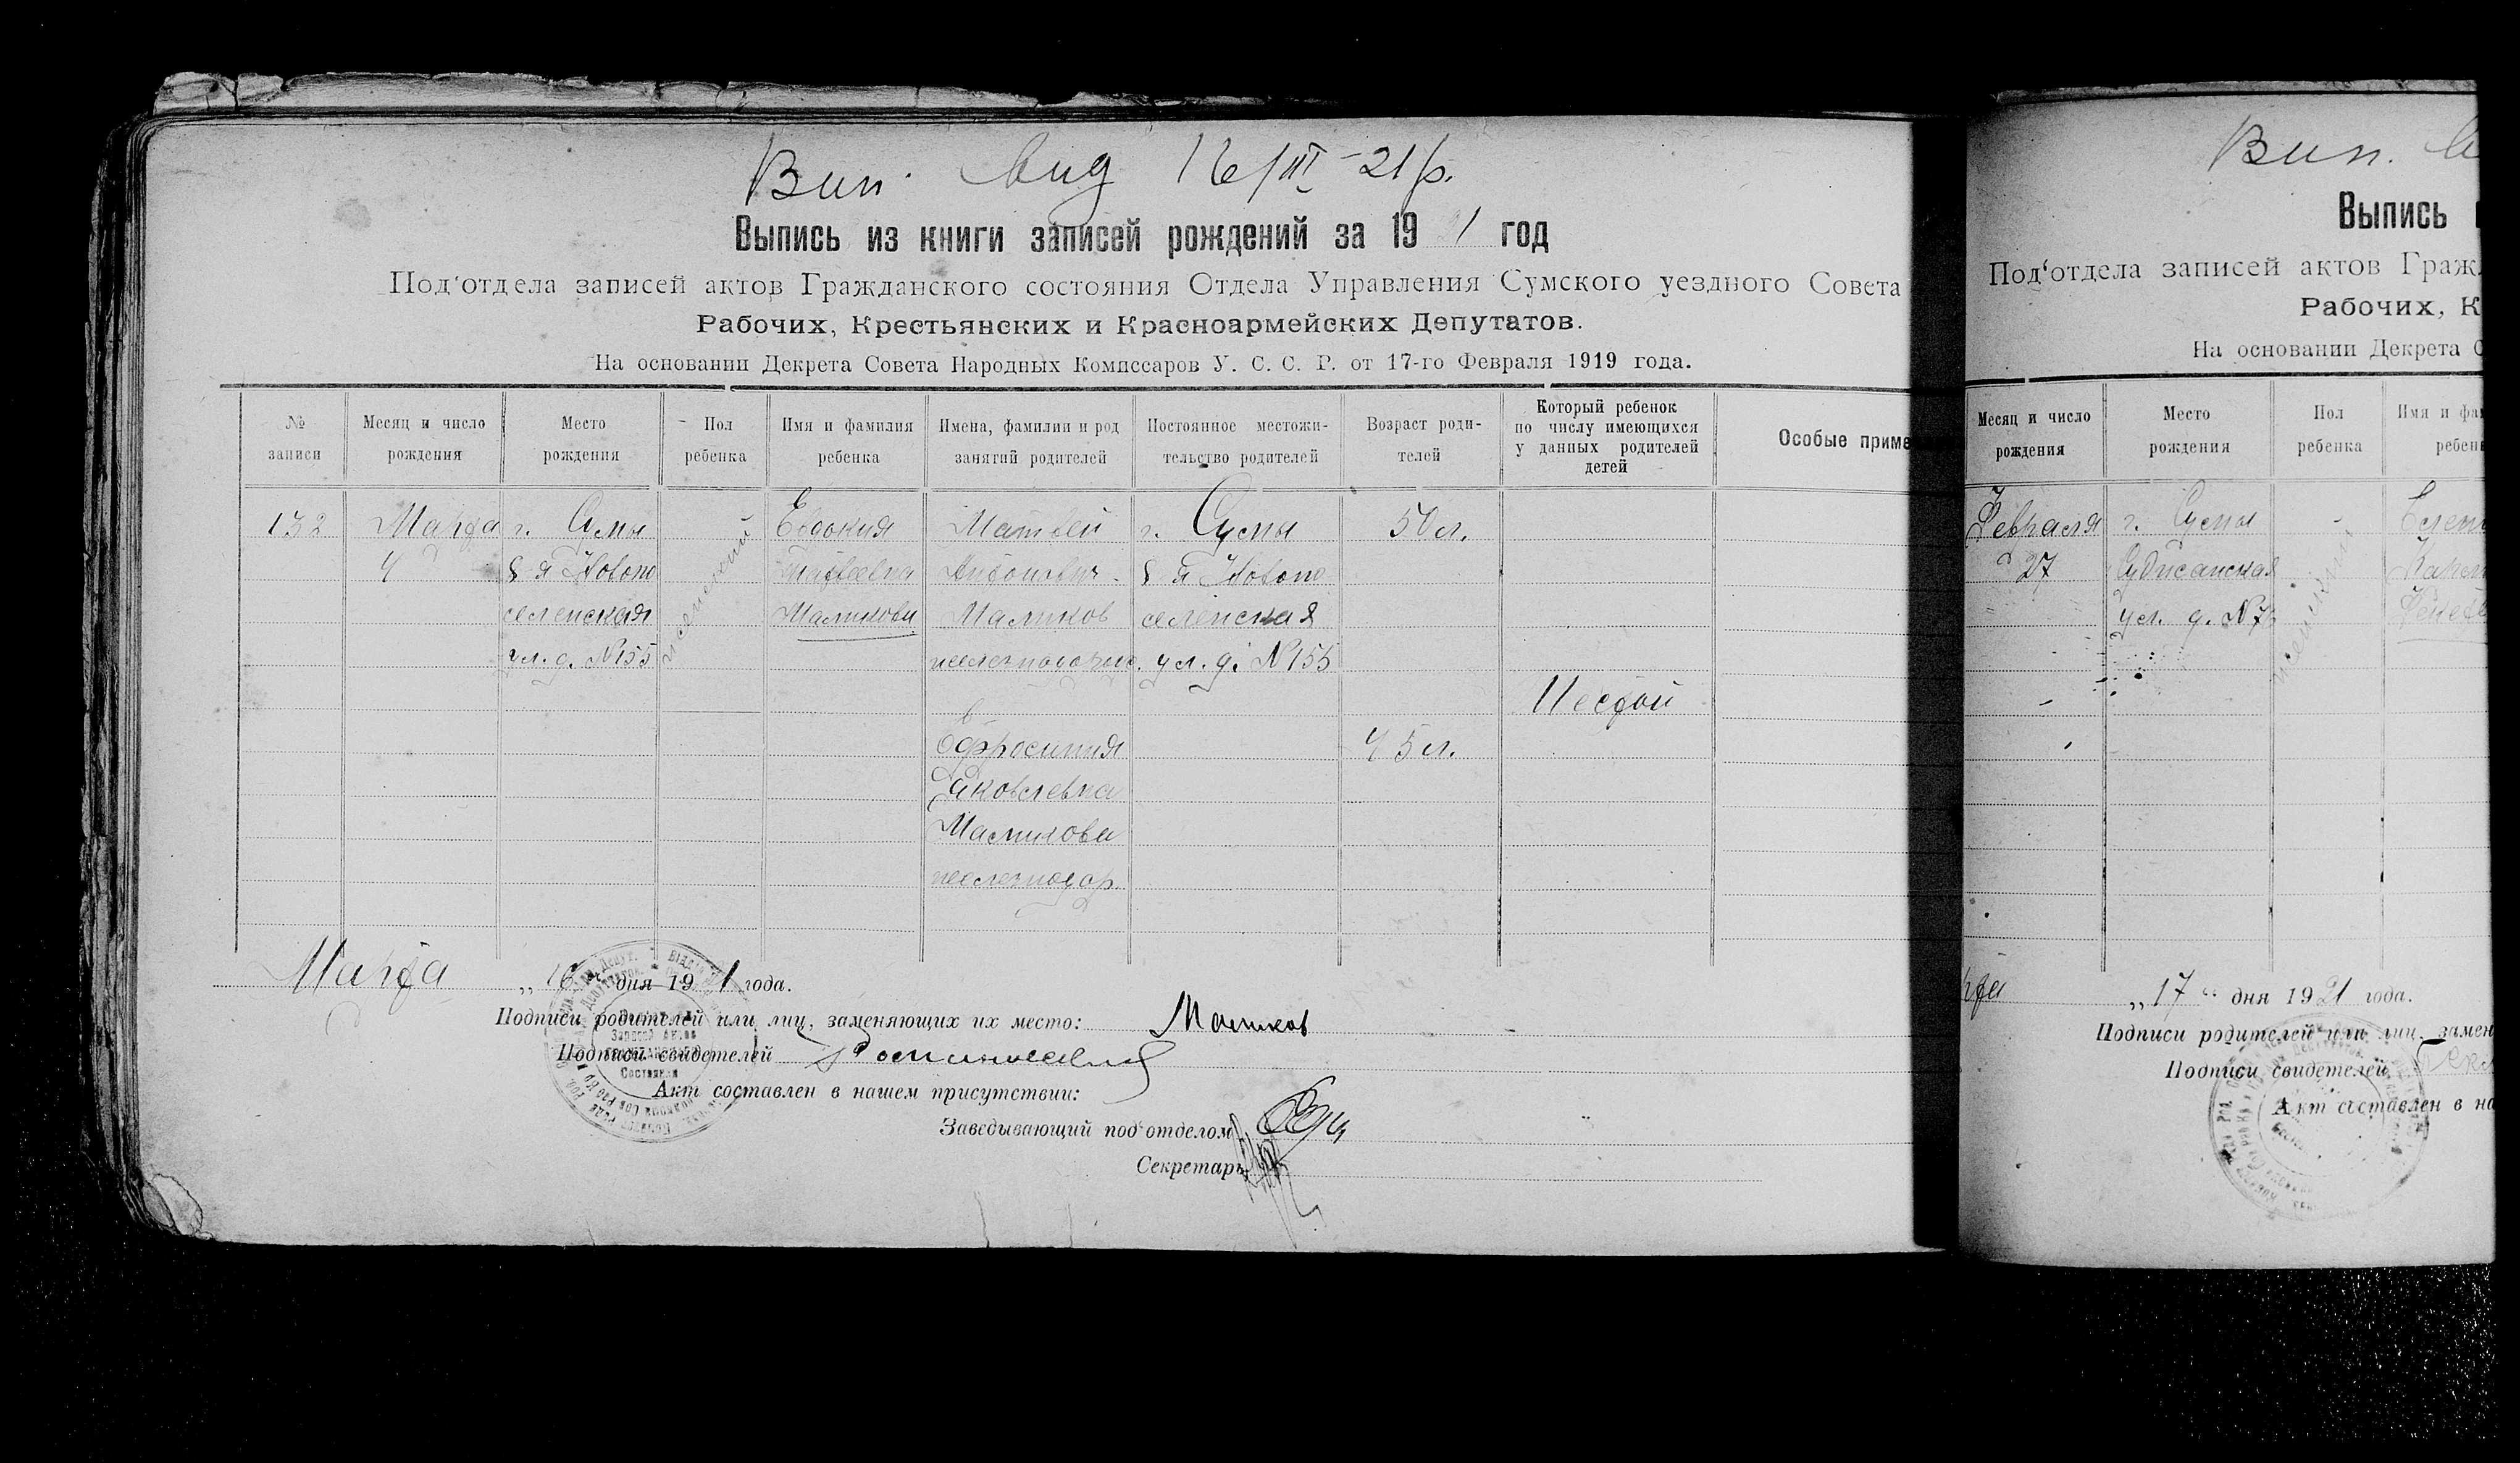 Вип. вид 16/III-21 р.
Выпись из книги записей рождений за 1921 год
Под‘отдела записей актов Гражданского состояния Отдела Управления Сумского уездного Совета
Рабочих, Крестьянских и Красноармейских Депутатов.
На основании Декрета Совета Народных Комиссаров У. С. С. Р. от 17-го Февраля 1919 года.
№ записи
Месяц и число рождения
Место рождения
Пол ребенка
Имя и фамилия ребенка
Имена, фамилии и род занятий родителей
Постоянное местожительство родителей
Возраст родителей
Который ребенок по числу имеющихся у данных родителей детей
Особые приме
132
Марта
4
г. Сумы
8 я Ново
селенская
ул. д. №155
женский
Евдокия
Матвеевна
Маликова
Матвей
Маликов
г. Сумы
8 я Ново
селенская
ул. д. №155
50 л.
Шестой
Ефросиния
Яковлевна
Маликова
45 л.
Марта „16“ дня 1921 года.
Подписи родителей или лиц, заменяющих их место: Маликов
Подписи свидетелей
Акт составлен в нашем присутствии:
Заведывающий под‘отделом
Секретарь
Вип. в
Выпись
Под‘отдела записей актов Граж
Рабочих, К
На основании Декрета С
Месяц и число рождения
Место рождения
Пол ребенка
Имя и фа
ребен
Февраля
27
г. Сумы
ул. д. №
женский
„17“ дня 1921 года.
Подписи родителей или лиц, замен
Подписи свидетелей
Акт составлен в на